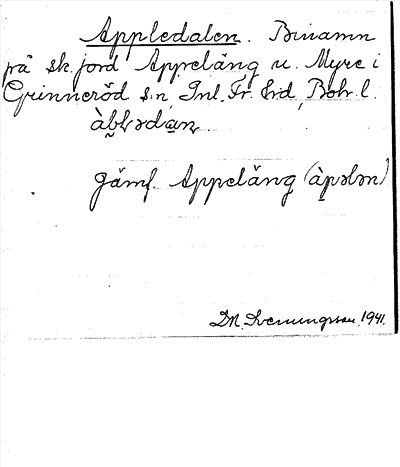 Appledalen. Binamn
på sk. jord Appeläng u. Myre i
Grinneröd s:n, Inl. Fr. hd, Boh. l.
àb̬ḷədạn
Jämf. Appeläng (àpələn)
D.M. Svenungsson 1941.